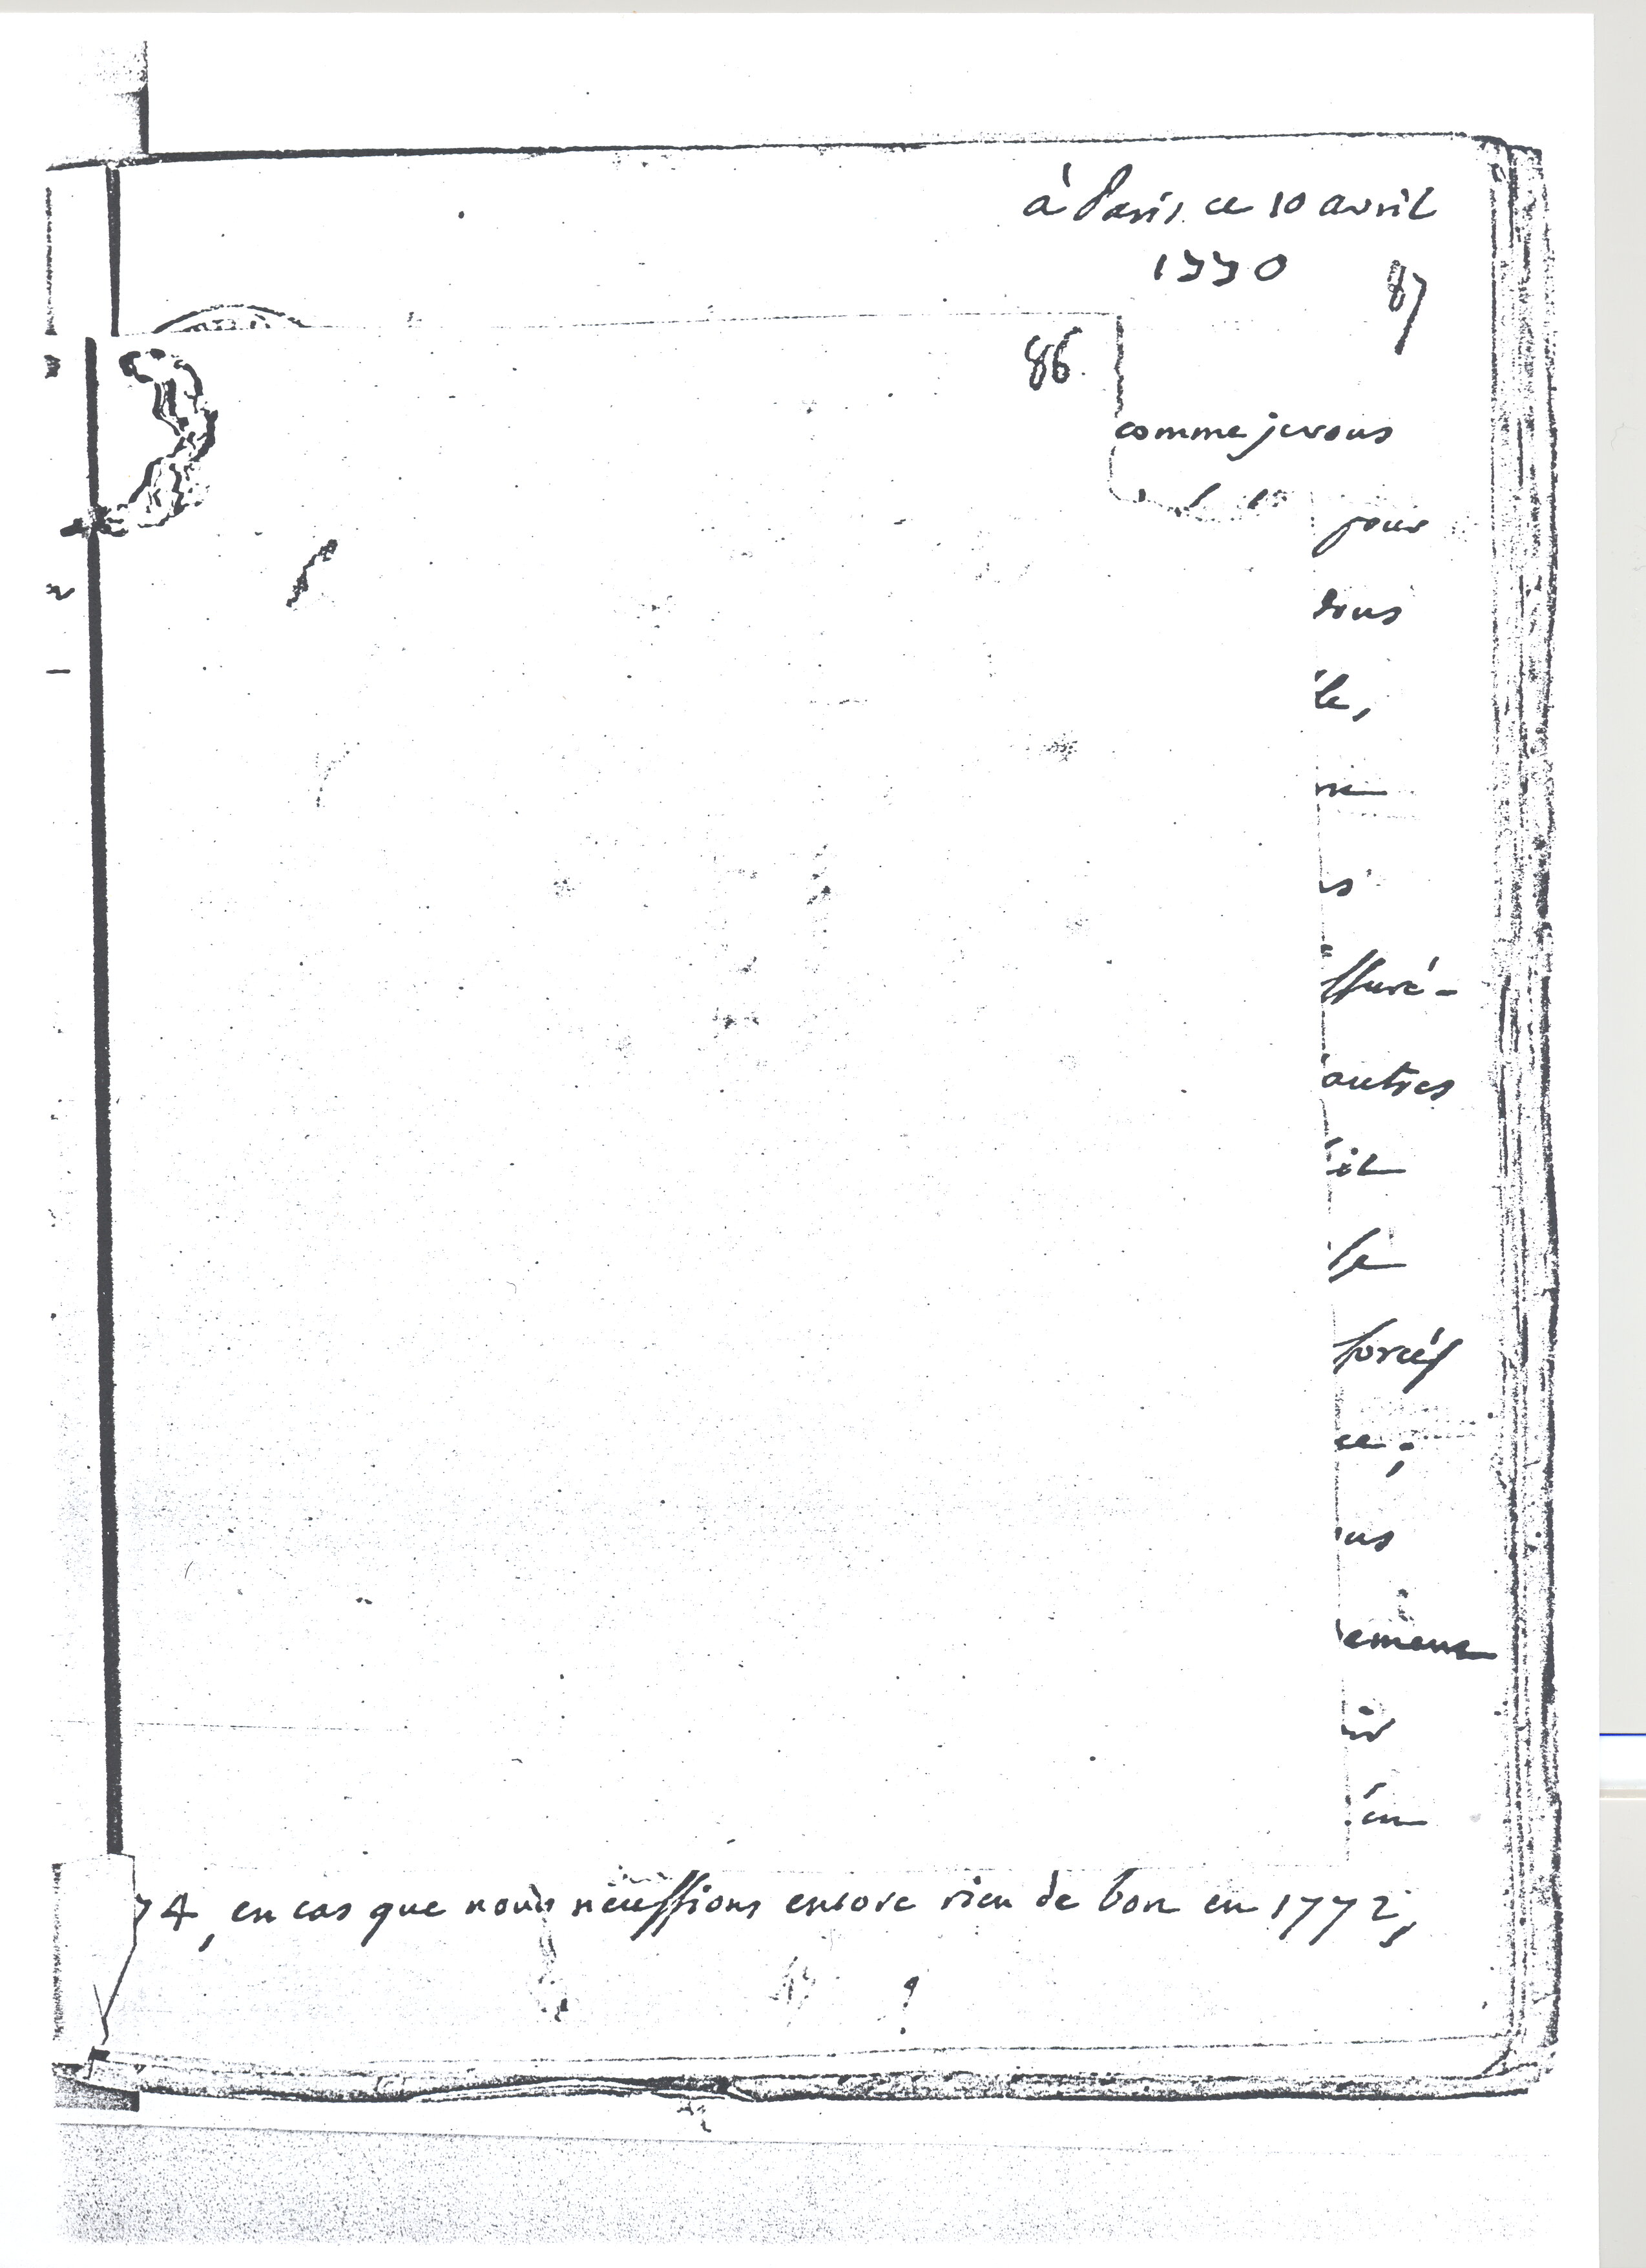 à Paris ce 10 avril
1770
87
86
comme je vous
pour
vous
le,
ne
s
ssuré-
autres
il
le
forcés
ce;
us
ement
ir
en
74, en cas que nous n'eussions encore rien de bon en 1772,